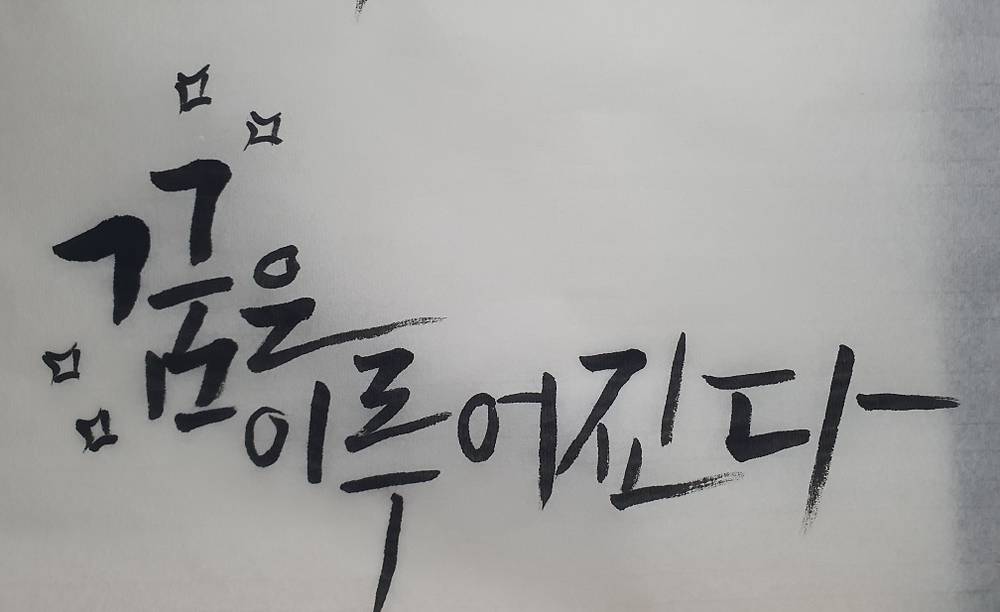 꿈은
이루어진다